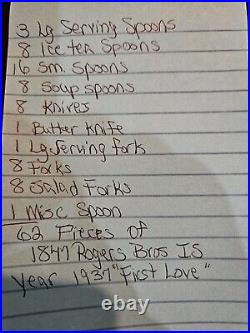 3 Lg Serving Spoons
8 Ice tea Spoons
16 Sm. Spoons
8 Soup spoons
8 Knives
1 Butter Knife
1 Lg Serving fork
8 Forks
8 Salad Forks
1 Misc Spoon
62 Pieces of
1847 Rogers Bros IS
year 1937 "First Love"